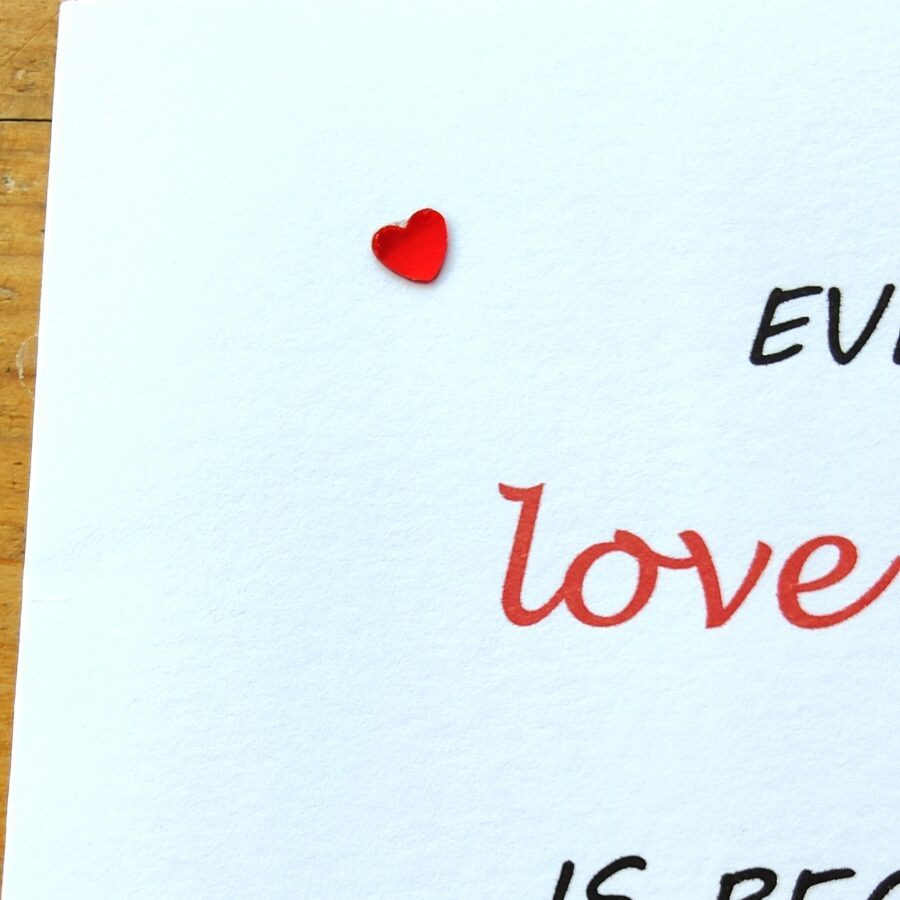 EV
love
IS